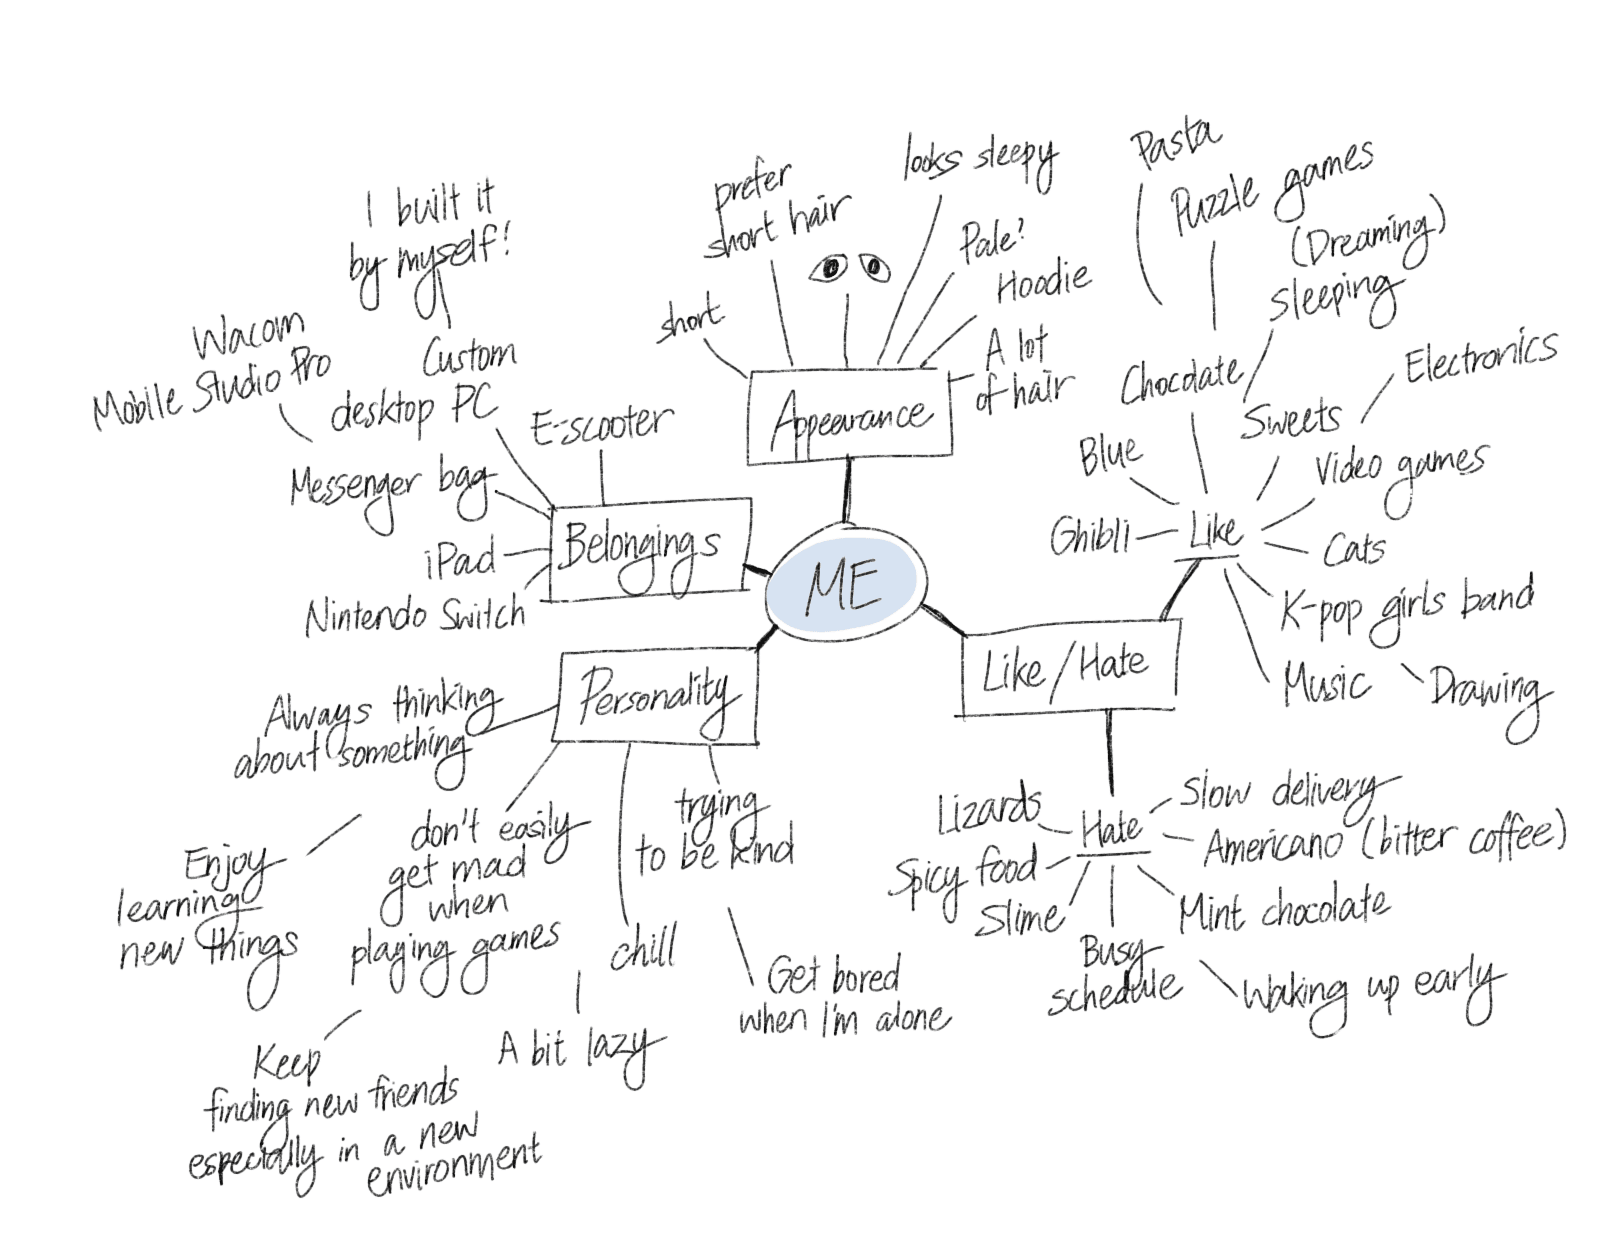 ME
Appearance
short
prefer
short hair
looks sleepy
Pale?
Hoodie
A lot
of hair
Belongings
E-scooter
I built it
by myself!
Custom
desktop PC
Wacom
Mobile Studio Pro
Messenger bag
iPad
Nintendo Switch
Personality
Always thinking
about something
Enjoy
learning
new things
don't easily
get mad
when
playing games
Keep
finding new friends
especially in a new
environment
chill
A bit lazy
trying
to be kind
Get bored
when I'm alone
Like/Hate
Like
Pasta
Puzzle games
(Dreaming)
Sleeping
Chocolate
Sweets
Electronics
Blue
Video games
Ghibli
Cats
K-pop girls band
Music
Drawing
Hate
Lizards
Spicy food
Slime
Busy
schedule
Slow delivery
Americano (bitter coffee)
Mint chocolate
Waking up early